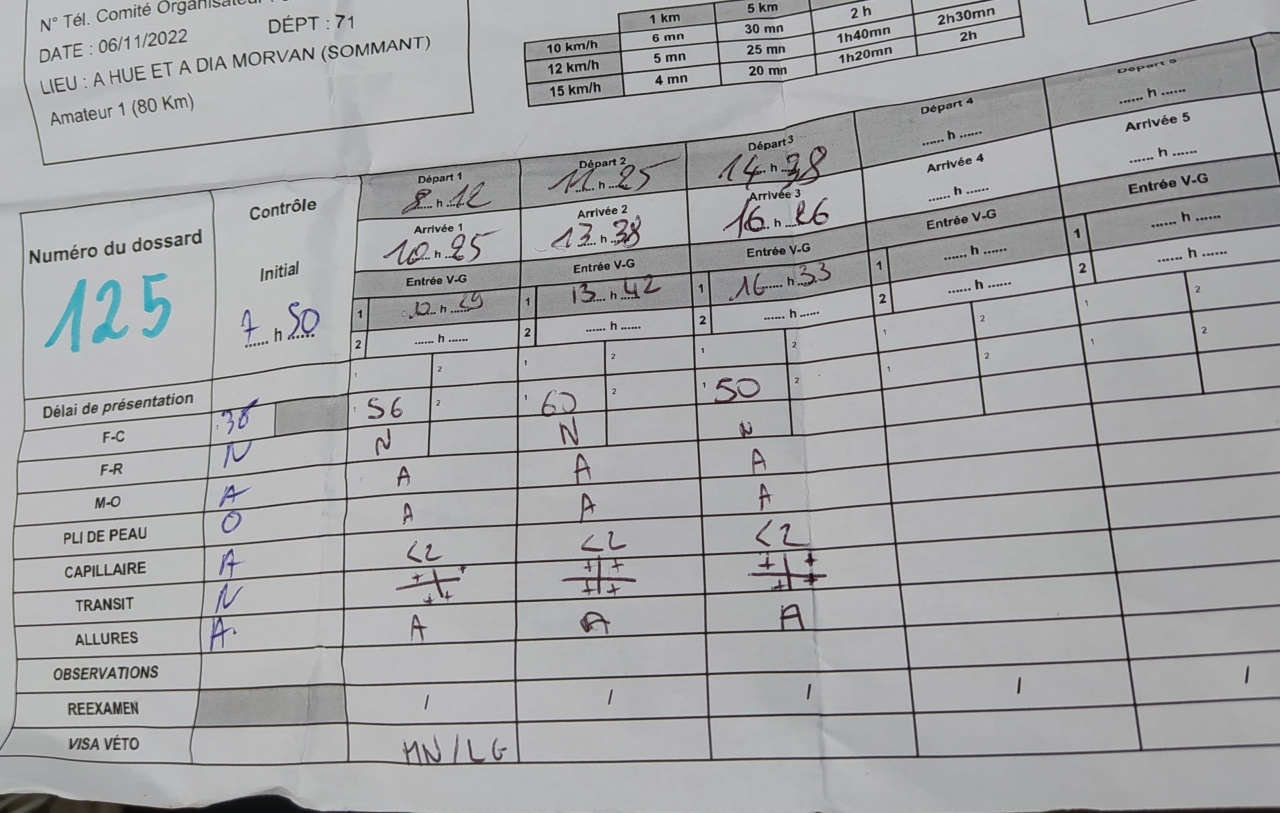 N° Tél. Comité
DATE : 06/11/2022 DÉPT : 71
LIEU : A HUE ET A DIA MORVAN (SOMMANT)
Amateur 1 (80 Km)
1 km 5 km
10 km/h 6 mn 30 mn 2 h
12 km/h 5 mn 25 mn 1h40mn 2h30mn
15 km/h 4 mn 20 mn 1h20mn 2h
Numéro du dossard
125
Contrôle
Initial
7 h 50
Départ 1 Départ 2 Départ 3 Départ 4 Départ 5
8 h 12 11 h 25 14 h 38 ...... h ...... ...... h ......
Arrivée 1 Arrivée 2 Arrivée 3 Arrivée 4 Arrivée 5
10 h 25 13 h 38 16 h 26 ...... h ...... ...... h ......
Entrée V-G Entrée V-G Entrée V-G Entrée V-G Entrée V-G
1 10 h 29 1 13 h 42 1 16 h 33 1 ...... h ...... 1 ...... h ......
2 ...... h ...... 2 ...... h ...... 2 ...... h ...... 2 ...... h ...... 2 ...... h ......
Délai de présentation 1 2 1 2 1 2 1 2 1 2
F-C 1 56 2 1 60 2 1 50 2 1 2 1 2
F-R N N N N
M-O A A A A
PLI DE PEAU O A A A
CAPILLAIRE A <2 <2 <2
TRANSIT N + + + + + + + + + + + +
ALLURES A. A A A
OBSERVATIONS
REEXAMEN / / / / /
VISA VÉTO MN/LG